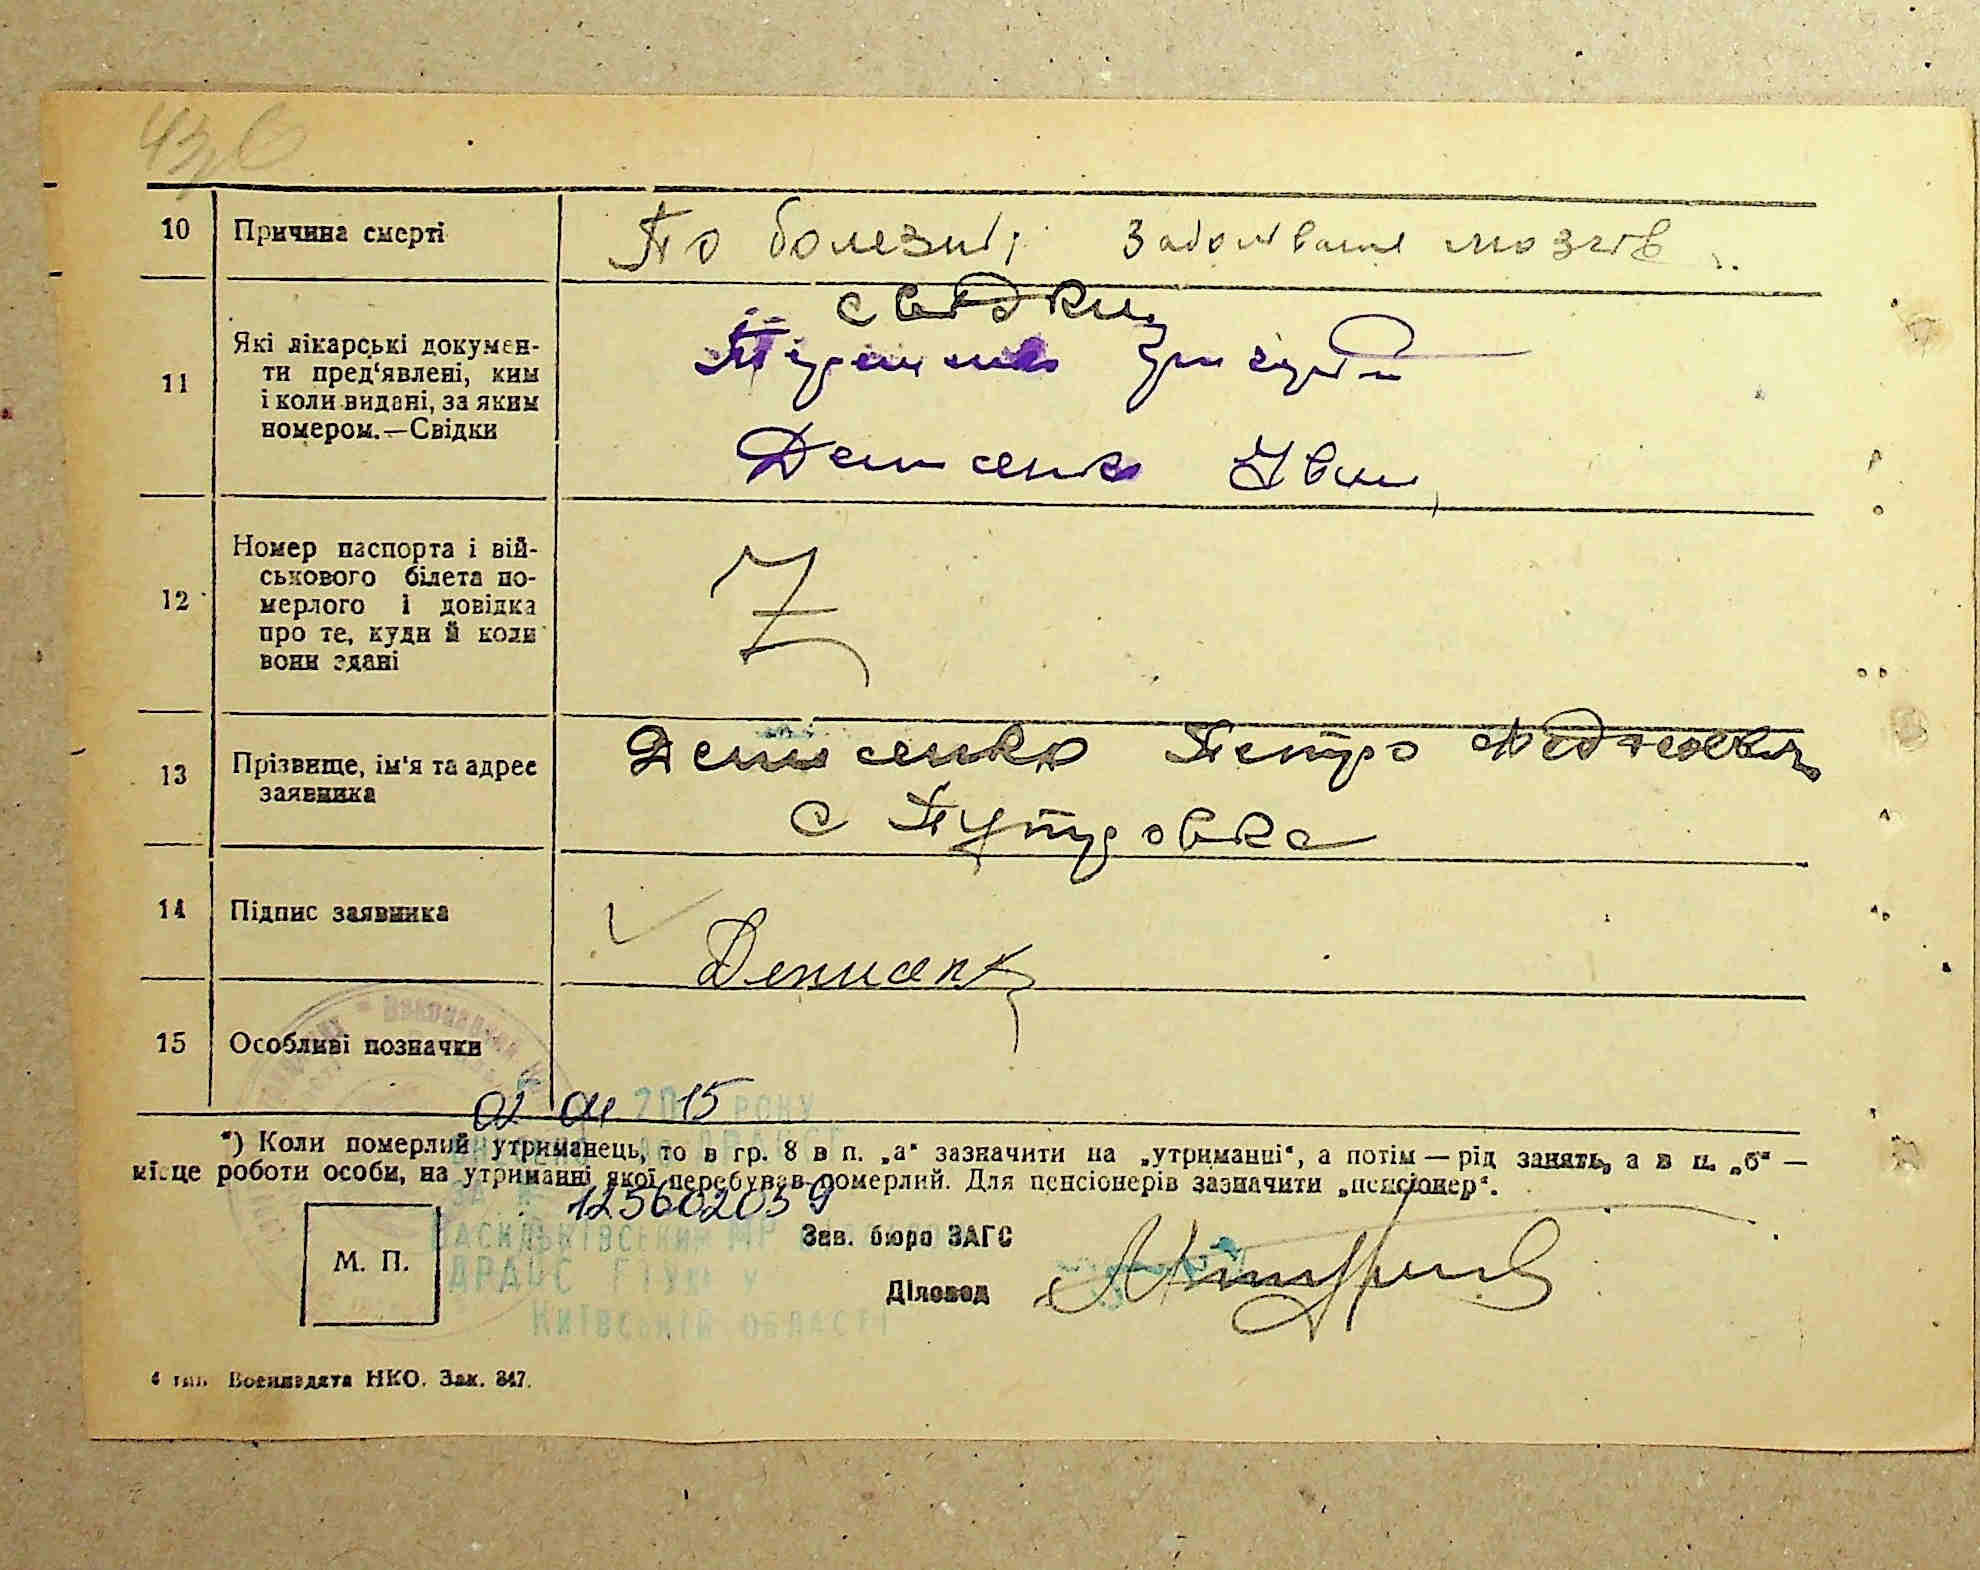 436
10 Причина смерті По болезні заболівание мозгів
свідки
11 Які лікарські докумен-
ти пред‘явлені, ким
і коли видані, за яким
номером.—Свідки
Денисенко Іван
12 Номер паспорта і вій-
ськового білета по-
мерлого і довідка
про те, куди й коли
вони здані
Z
13 Прізвище, ім‘я та адрес
заявника
Денисенко Петро
с
14 Підпис заявника
15 Особливі позначки
02 04 2015 РОКУ
*) Коли померлий утриманець, то в гр. 8 в п. „а“ зазначити на „утриманні“, а потім — рід занять, а в п. „б“ —
місце роботи особи, на утриманні якої перебував померлий. Для пенсіонерів зазначити „пенсіонер“.
ЗА № 12560205 9
ВАСИЛЬКІВСЬКИЙ МР
ДРАЦС ГТУЮ У
КИЇВСЬКІЙ ОБЛАСТІ
М. П.
Зав. бюро ЗАГС
Діловод
4 тип. Воениздата НКО. Зак. 847.